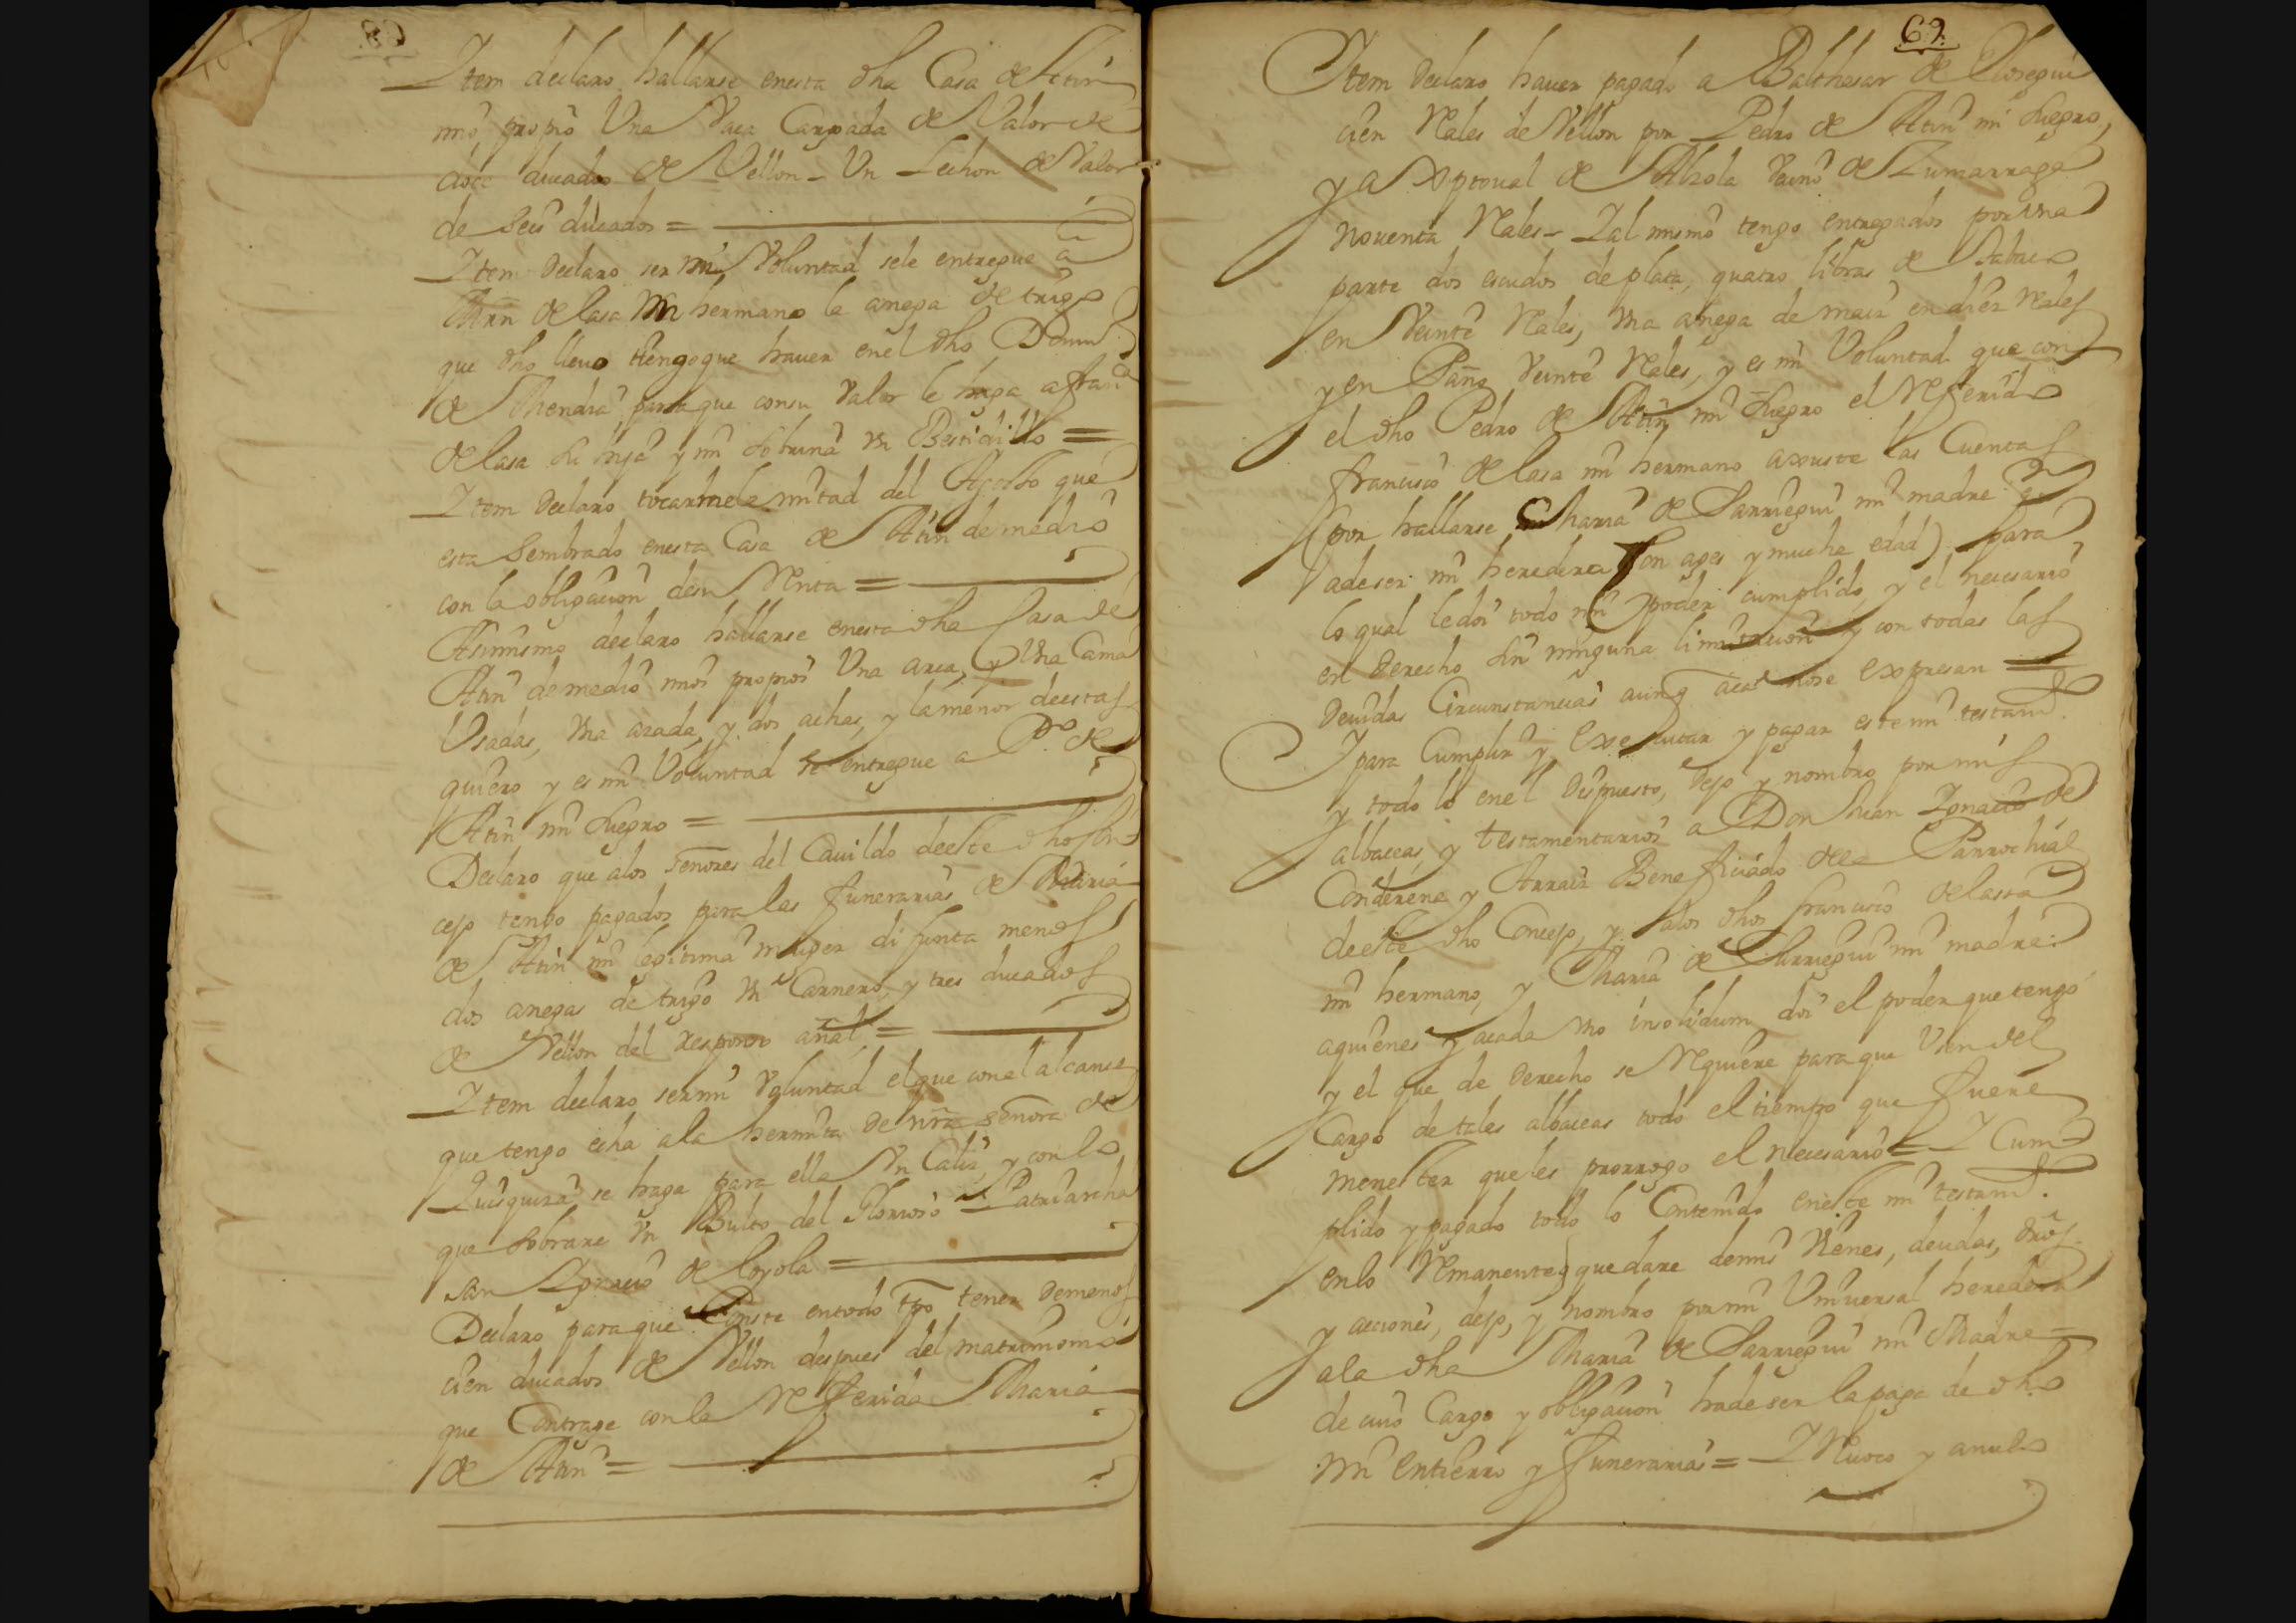 Item declaro hallarse enesta dha Casa de Atin
mio propio Una Vaca Cargada de Valor de
doce ducados de Vellon - Un Lechon de Valor
de seis ducados =
Item Declaro ser mi Voluntad sele entregue a
de lasa mi hermano la anega de trigo
que dho llevo tengo que haver enel dho
de Mendia, para que consu Valor le haga a fran.ca
de lasa su hija y mi sobrina un Bestidillo =
Item Declaro tocarme la mitad del Agosto que
esta Sembrado enesta Casa de Atin de medio
con la obligacion desu Renta =
Asimismo declaro hallarse enesta dha Casa de
Atin de medio mios propios Una arca, y Una Cama
Usadas, Una azada, y dos achas, y la menor de estas
quiero y es mi Voluntad se entregue a P.o de
Atin mi Suegro =
Declaro que alos Señores del Cavildo deeste dho Con
cejo tengo pagados para las funerarias de Maria
de Atin mi legitima muger difunta menos
dos anegas de trigo Un Carnero, y tres ducados
de Vellon del Responso añal =
Item declaro ser mi Voluntad el que con el alcance
que tengo echa ala hermita de nra Señora de
Zuisquiza se haga para ella Un Caliz, y con lo
que sobrare Un Bulto del Glorioso Patriarcha
San Ignacio de Loyola =
Declaro para que Conste entodo tpo tener demenos
cien ducados de Vellon despues del matrimonio
que Contrage con la Referida Maria
de Atin =
69.
Item Declaro haver pagado a Balthasar de
cien Reales de Vellon por Pedro de Atin mi Suegro,
y a Xptoval de Alzola Vecino de Zumarraga
noventa Reales - Y al mismo tengo entregados por Una
parte dos escudos de plata, quatro libras de
en Veinte Reales, Una anega de maiz en diez Reales
y en Paño Veinte Reales, y es mi Voluntad que con
el dho Pedro de Atin mi Suegro el Referido
francisco de lasa mi hermano axuste las Cuentas
(por hallarse Maria de Sarriegui mi madre q
ade ser mi heredera con ages y mucha edad) para
lo qual le doi todo mi poder cumplido, y el necesario
en Derecho sin ninguna limitacion y con todas las
Devidas Circunstancias aunq aca nose expresan =
Y para Cumplir y Executar y pagar este mi testam.to
y todo lo enel Dispuesto, Dejo y nombro por mis
albaceas y testamentarios a Don Juan Ignacio de
y Arraiz Beneficiado dela Parrochial
deeste dho Concejo, y alos dhos francisco de lasa
mi hermano, y Maria de Sarriegui mi madre
aquienes y acada Uno insolidum doi el poder que tengo
y el que de Derecho se Requiere para que Usen del
Cargo de tales albaceas todo el tiempo que fuere
menester que les prorrogo el necesario = Y Cum
plido y pagado todo lo Contenido eneste mi testam.to
enlo Remanente que dare demis Vienes, deudas, dros
y acciones, dejo, y nombro por mi Universal heredera
ala dha Maria de Sarriegui mi Madre
de cuio Cargo y obligacion hade ser la paga de dho
mi Entierro y funerarias = Y Revoco y anulo